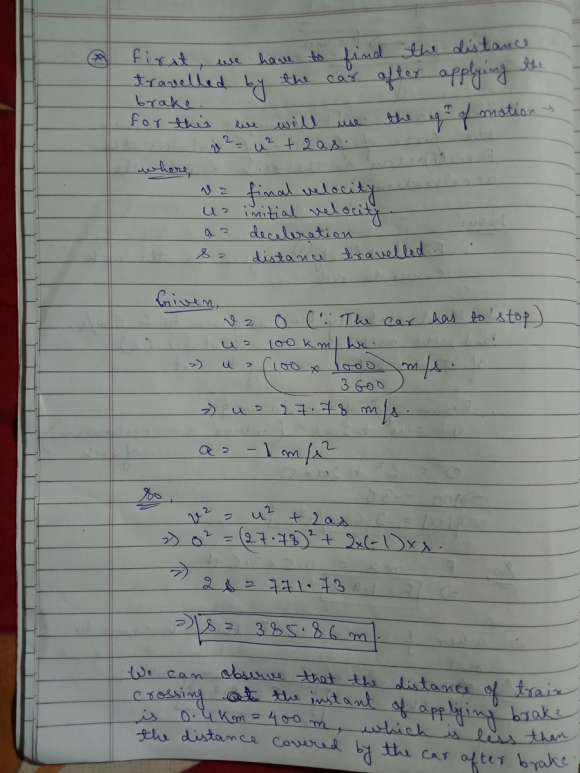 * First, we have to find the distance
travelled by the car after applying the
brake.
For this we will use the eqⁿ of motion →
v² = u² + 2as.
where,
v = final velocity
u = initial velocity.
a = deceleration
s = distance travelled.
Given,
v = 0 (∵ The car has to stop)
u = 100 km/hr.
⇒ u = (100 × 1000/3600) m/s.
⇒ u = 27.78 m/s.
a = -1 m/s²
So,
v² = u² + 2as
⇒ 0² = (27.78)² + 2×(-1)×s.
⇒
2s = 771.73
⇒ s = 385.86 m.
We can observe that the distance of train
crossing at the instant of applying brake
is 0.4 Km = 400 m, which is less than
the distance covered by the car after brake.